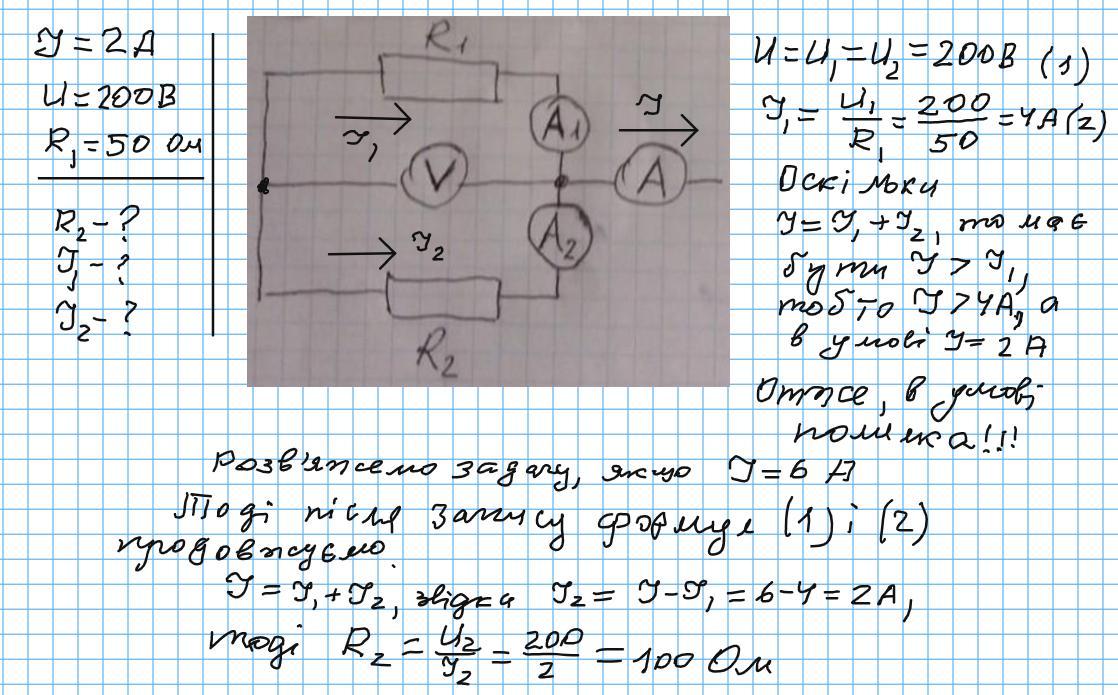 I = 2 A
U = 200 В
R₁ = 50 Ом
R₂ - ?
I₁ - ?
I₂ - ?
R₁
I₁
A₁
I
V
A
I₂
A₂
R₂
U = U₁ = U₂ = 200 В (1)
I₁ = U₁/R₁ = 200/50 = 4 А (2)
Оскільки
I = I₁ + I₂, то має
бути I > I₁,
тобто I > 4 А, а
в умові I = 2 А
Отже, в умові
помилка!!!
Розв'яжемо задачу, якщо I = 6 А
Тоді після запису формул (1) і (2)
продовжуємо.
I = I₁ + I₂, звідки I₂ = I - I₁ = 6 - 4 = 2 А,
тоді R₂ = U₂/I₂ = 200/2 = 100 Ом